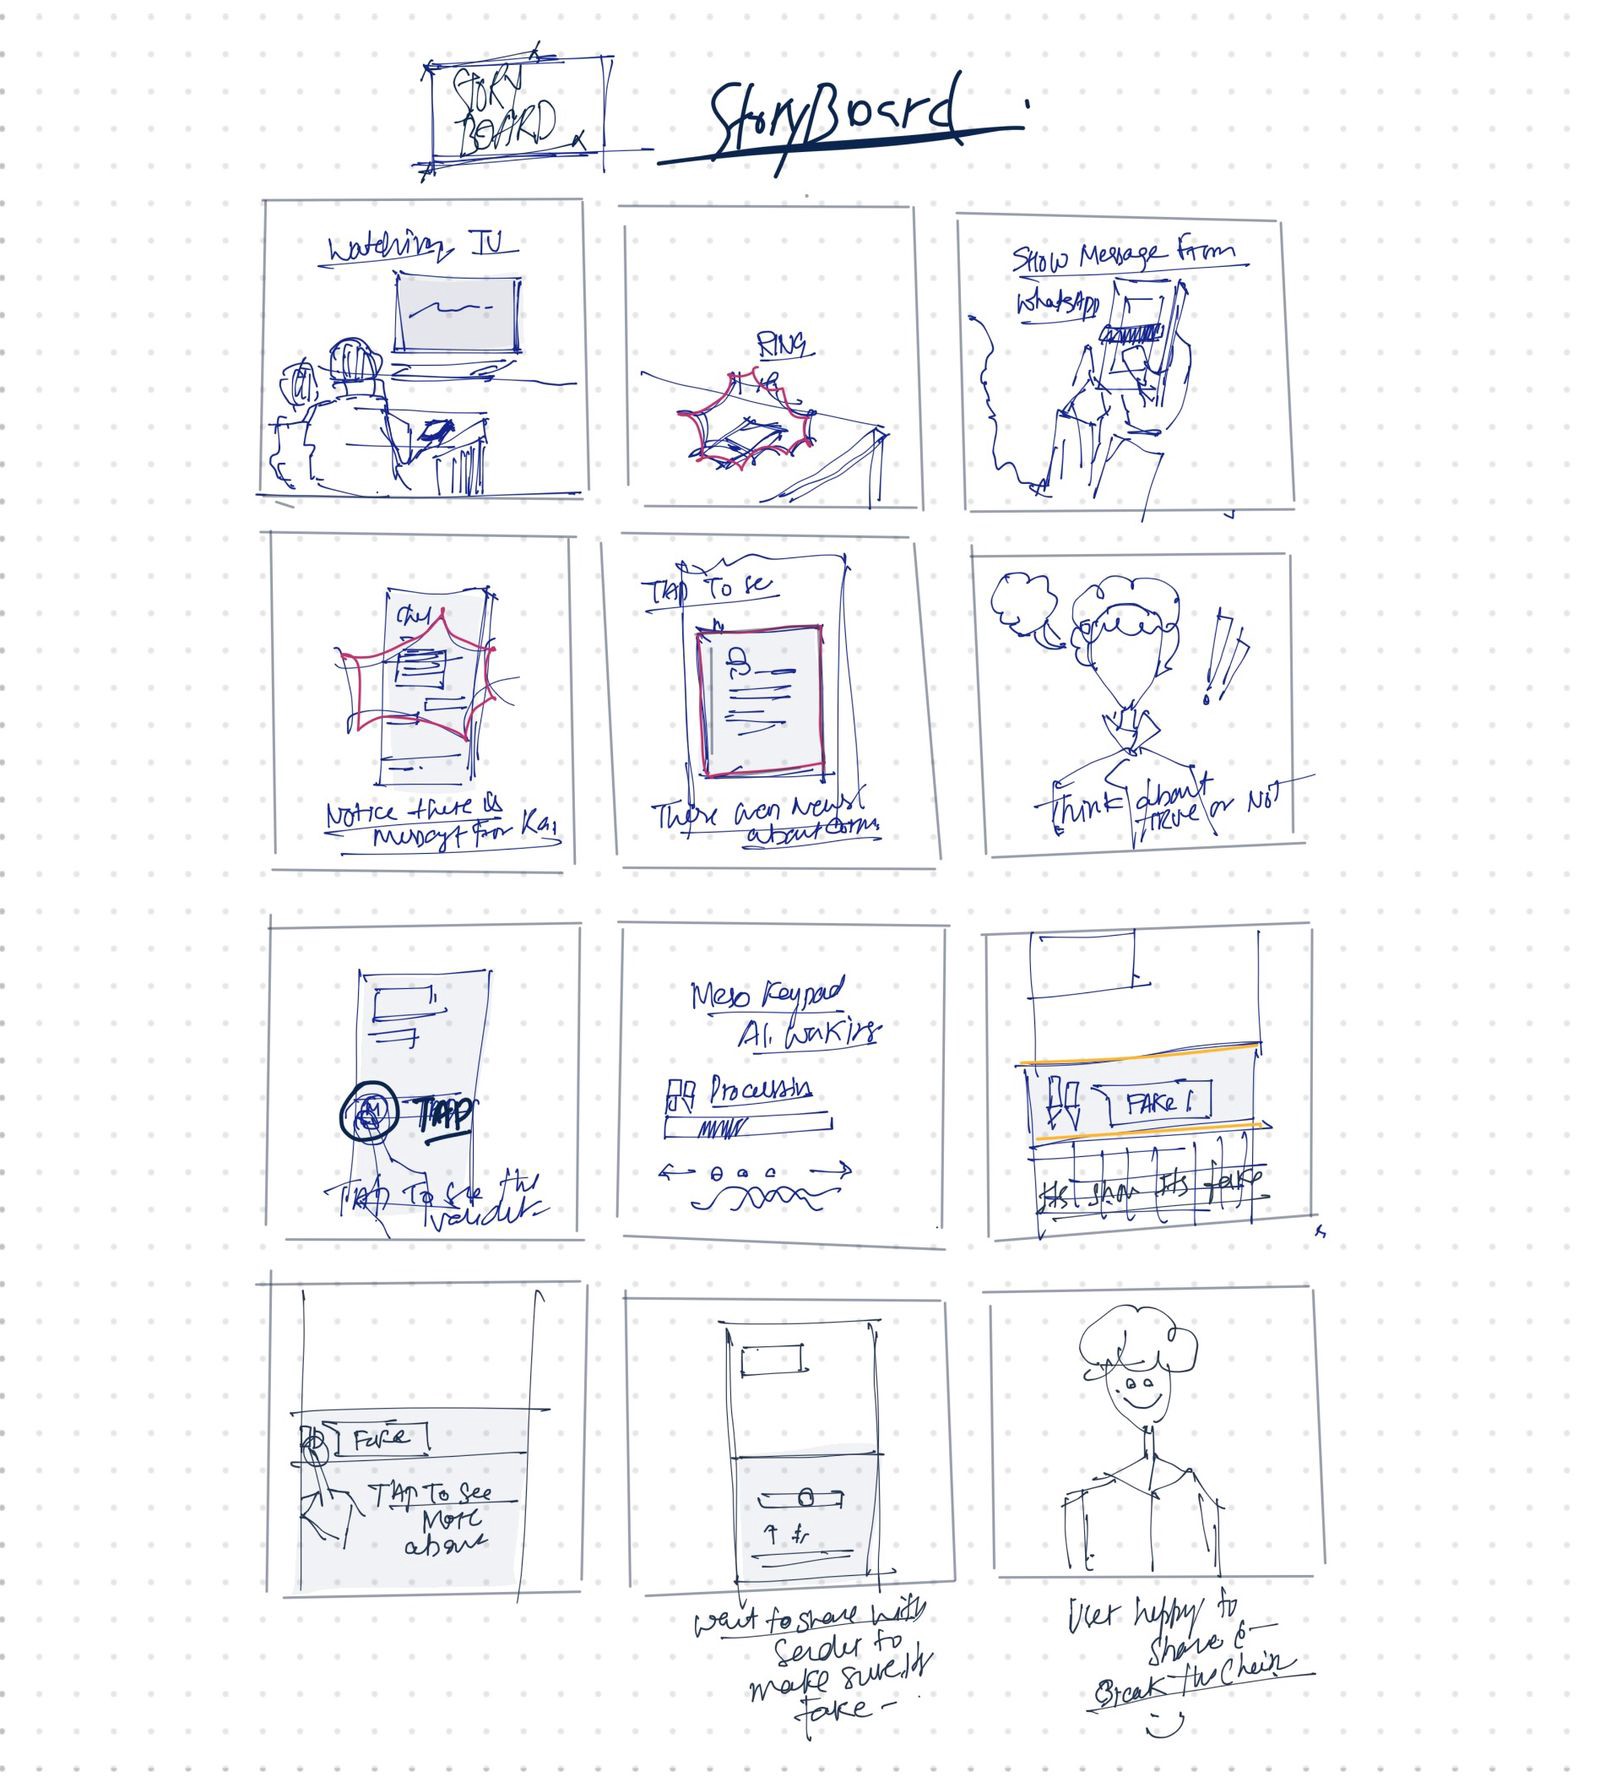 STORY
BOARD
StoryBoard
Watching TV
RING
Show Message From
WhatsApp
Chat
Notice there is
Message For
TAP To se
about
Think about
True or Not
TAP
TAP To see the
Keypad
AI.
Processin
FAKE!
Its show Its fake
Fake
TAP To see
More
about
want to share with
Sender to
make sure its
fake -
User happy to
Share &
Break the Chain